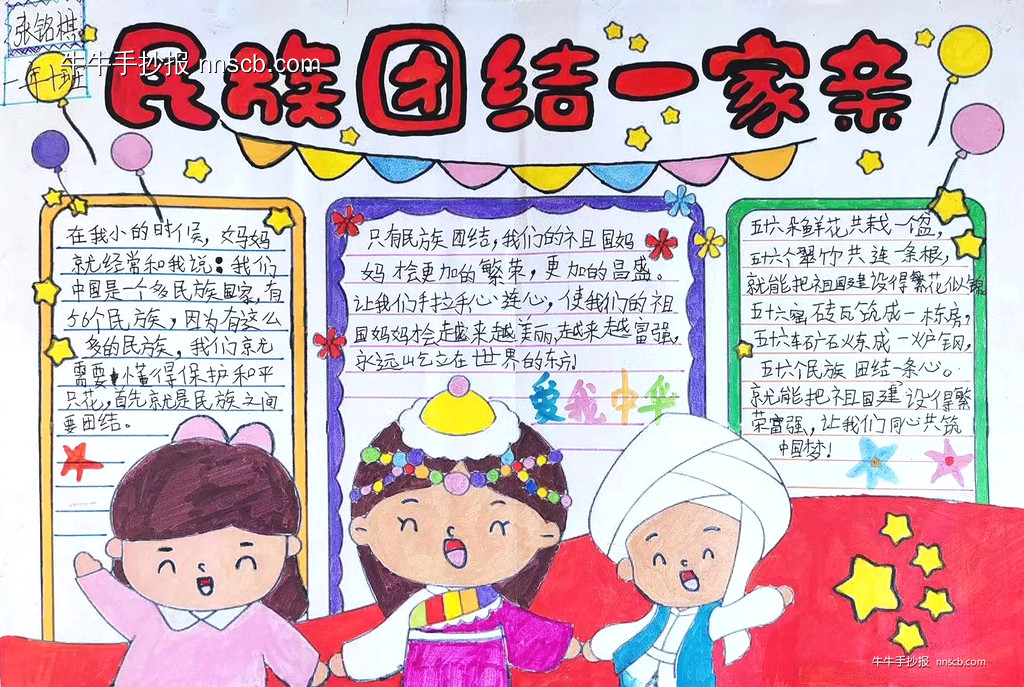 张铭棋
一年十班
牛牛手抄报 nnscb.com
民族团结一家亲
在我小的时候，妈妈
就经常和我说：我们
中国是一个多民族国家，有
56个民族，因为有这么
多的民族，我们就尤
需要懂得保护和平
只花，首先就是民族之间
要团结。
只有民族团结，我们的祖国妈
妈会更加的繁荣，更加的昌盛。
让我们手拉手心连心，使我们的祖
国妈妈会越来越美丽，越来越富强，
永远屹立在世界的东方！
爱我中华
五十六朵鲜花共栽一个盆，
五十六个翠竹共连一条根，
就能把祖国建设得繁花似锦。
五十六窑砖瓦筑成一栋房，
五十六车矿石炼成一炉钢，
五十六个民族团结一条心。
就能把祖国建设得繁
荣富强，让我们同心共筑
中国梦！
牛牛手抄报 nnscb.com